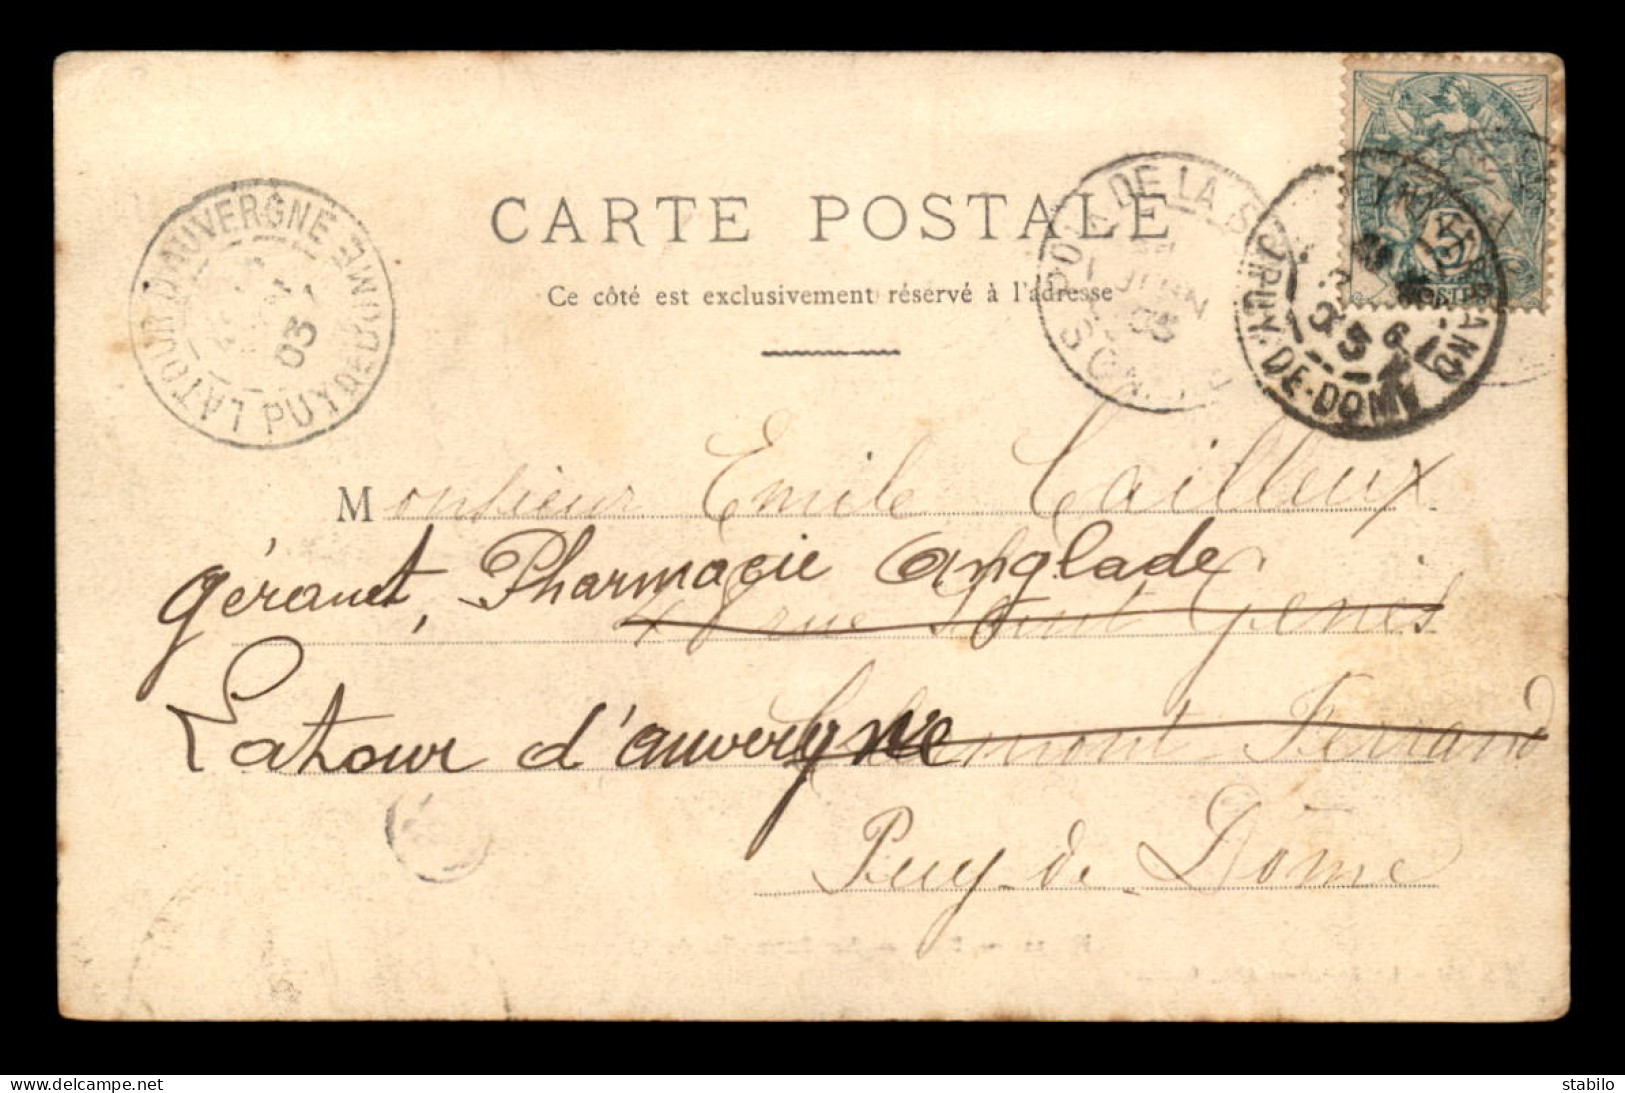 CARTE POSTALE
Ce côté est exclusivement réservé à l'adresse
LATOUR D'AUVERGNE
PUY DE DOME
03
DE LA
JUIN
03
FERRAND
PUY-DE-DOME
5
POSTES
Monsieur Emile Cailleux
gérant, Pharmacie Anglade
rue Saint Genès
Latour d'auvergne
Clermont Ferrand
Puy-de-Dôme
www.delcampe.net
stabilo